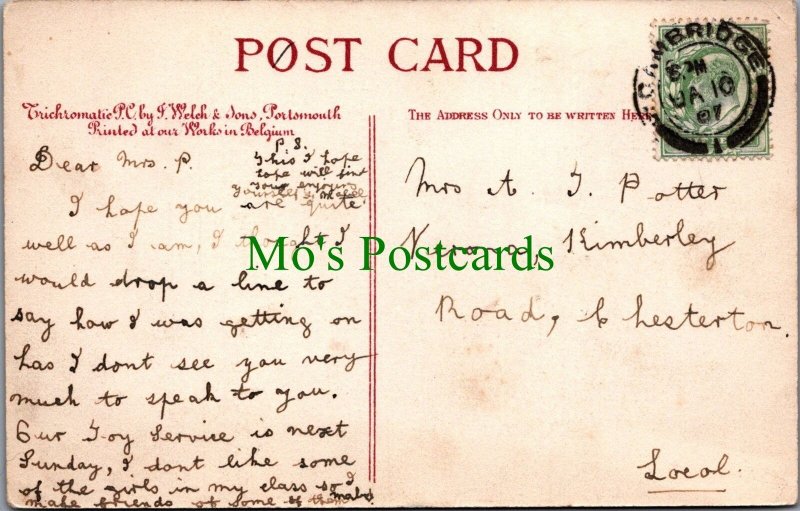 POST CARD
CAMBRIDGE
JA 10
07
Trichromatic P.C. by J. Welch & Sons, Portsmouth
Printed at our Works in Belgium
THE ADDRESS ONLY TO BE WRITTEN HERE
P. S.
This I hope
hope will find
you enjoying
yourself
Dear Mrs. P.
I hope you are quite
well as I am, I thought I
would drop a line to
say how I was getting on
has I dont see you very
much to speak to you.
Our Toy Service is next
Sunday, I dont like some
of the girls in my class so I
make friends of some of them
Mrs A. J. Potter
Kimberley
Road, Chesterton.
Local.
Mo's Postcards